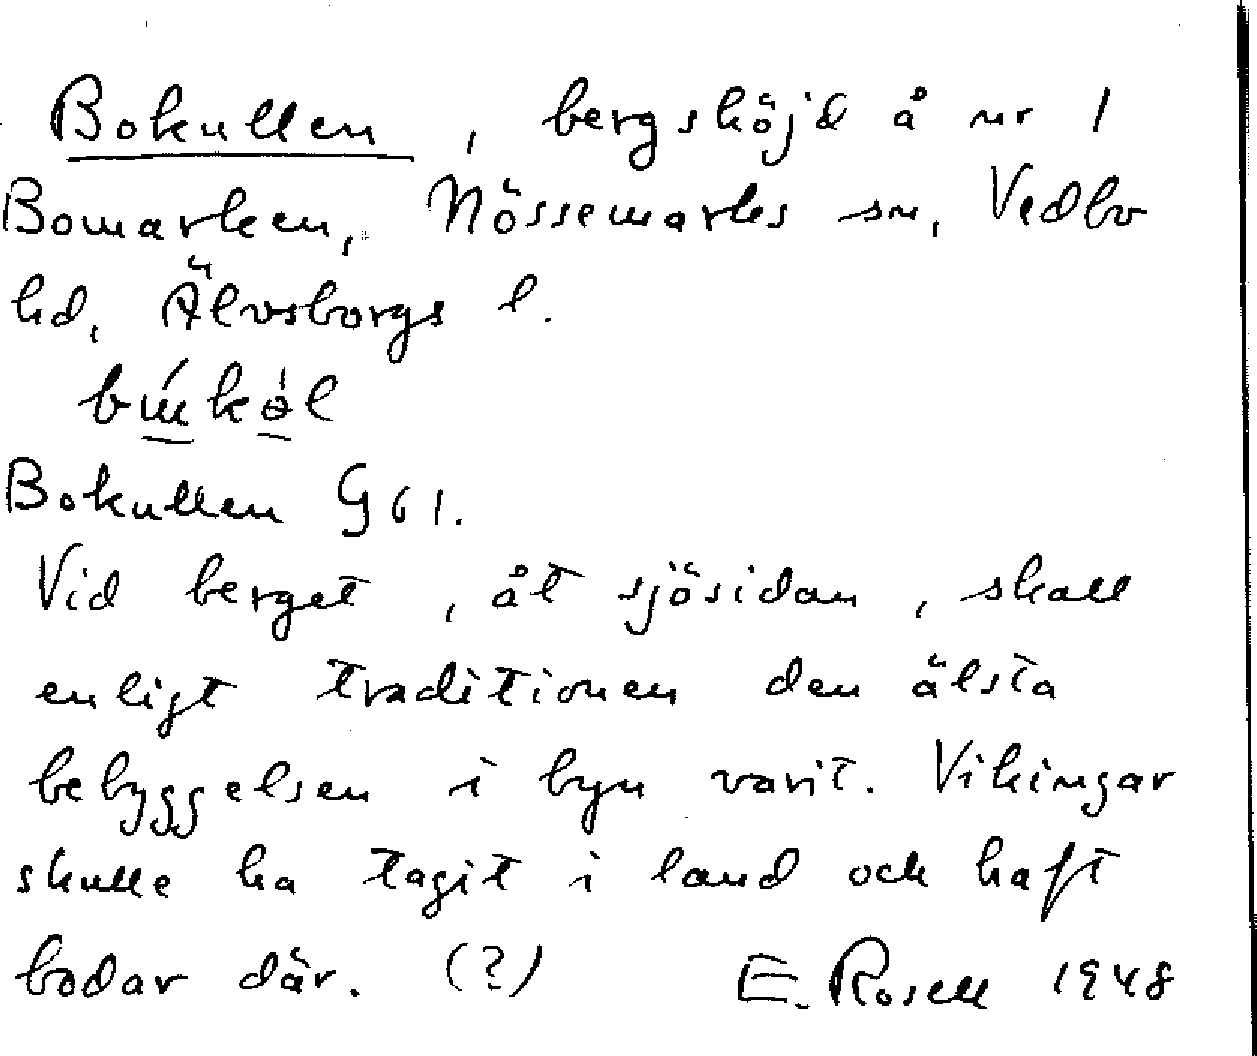 Bokullen, bergshöjd å nr 1
Bomarken, Nössemarks sn, Vedbo
hd, Älvsborgs l.
Bokullen G61.
Vid berget, åt sjösidan, skall
enligt traditionen den älsta
bebyggelsen i byn varit. Vikingar
skulle ha tagit i land och haft
bodar där. (?) E. Rosell 1948